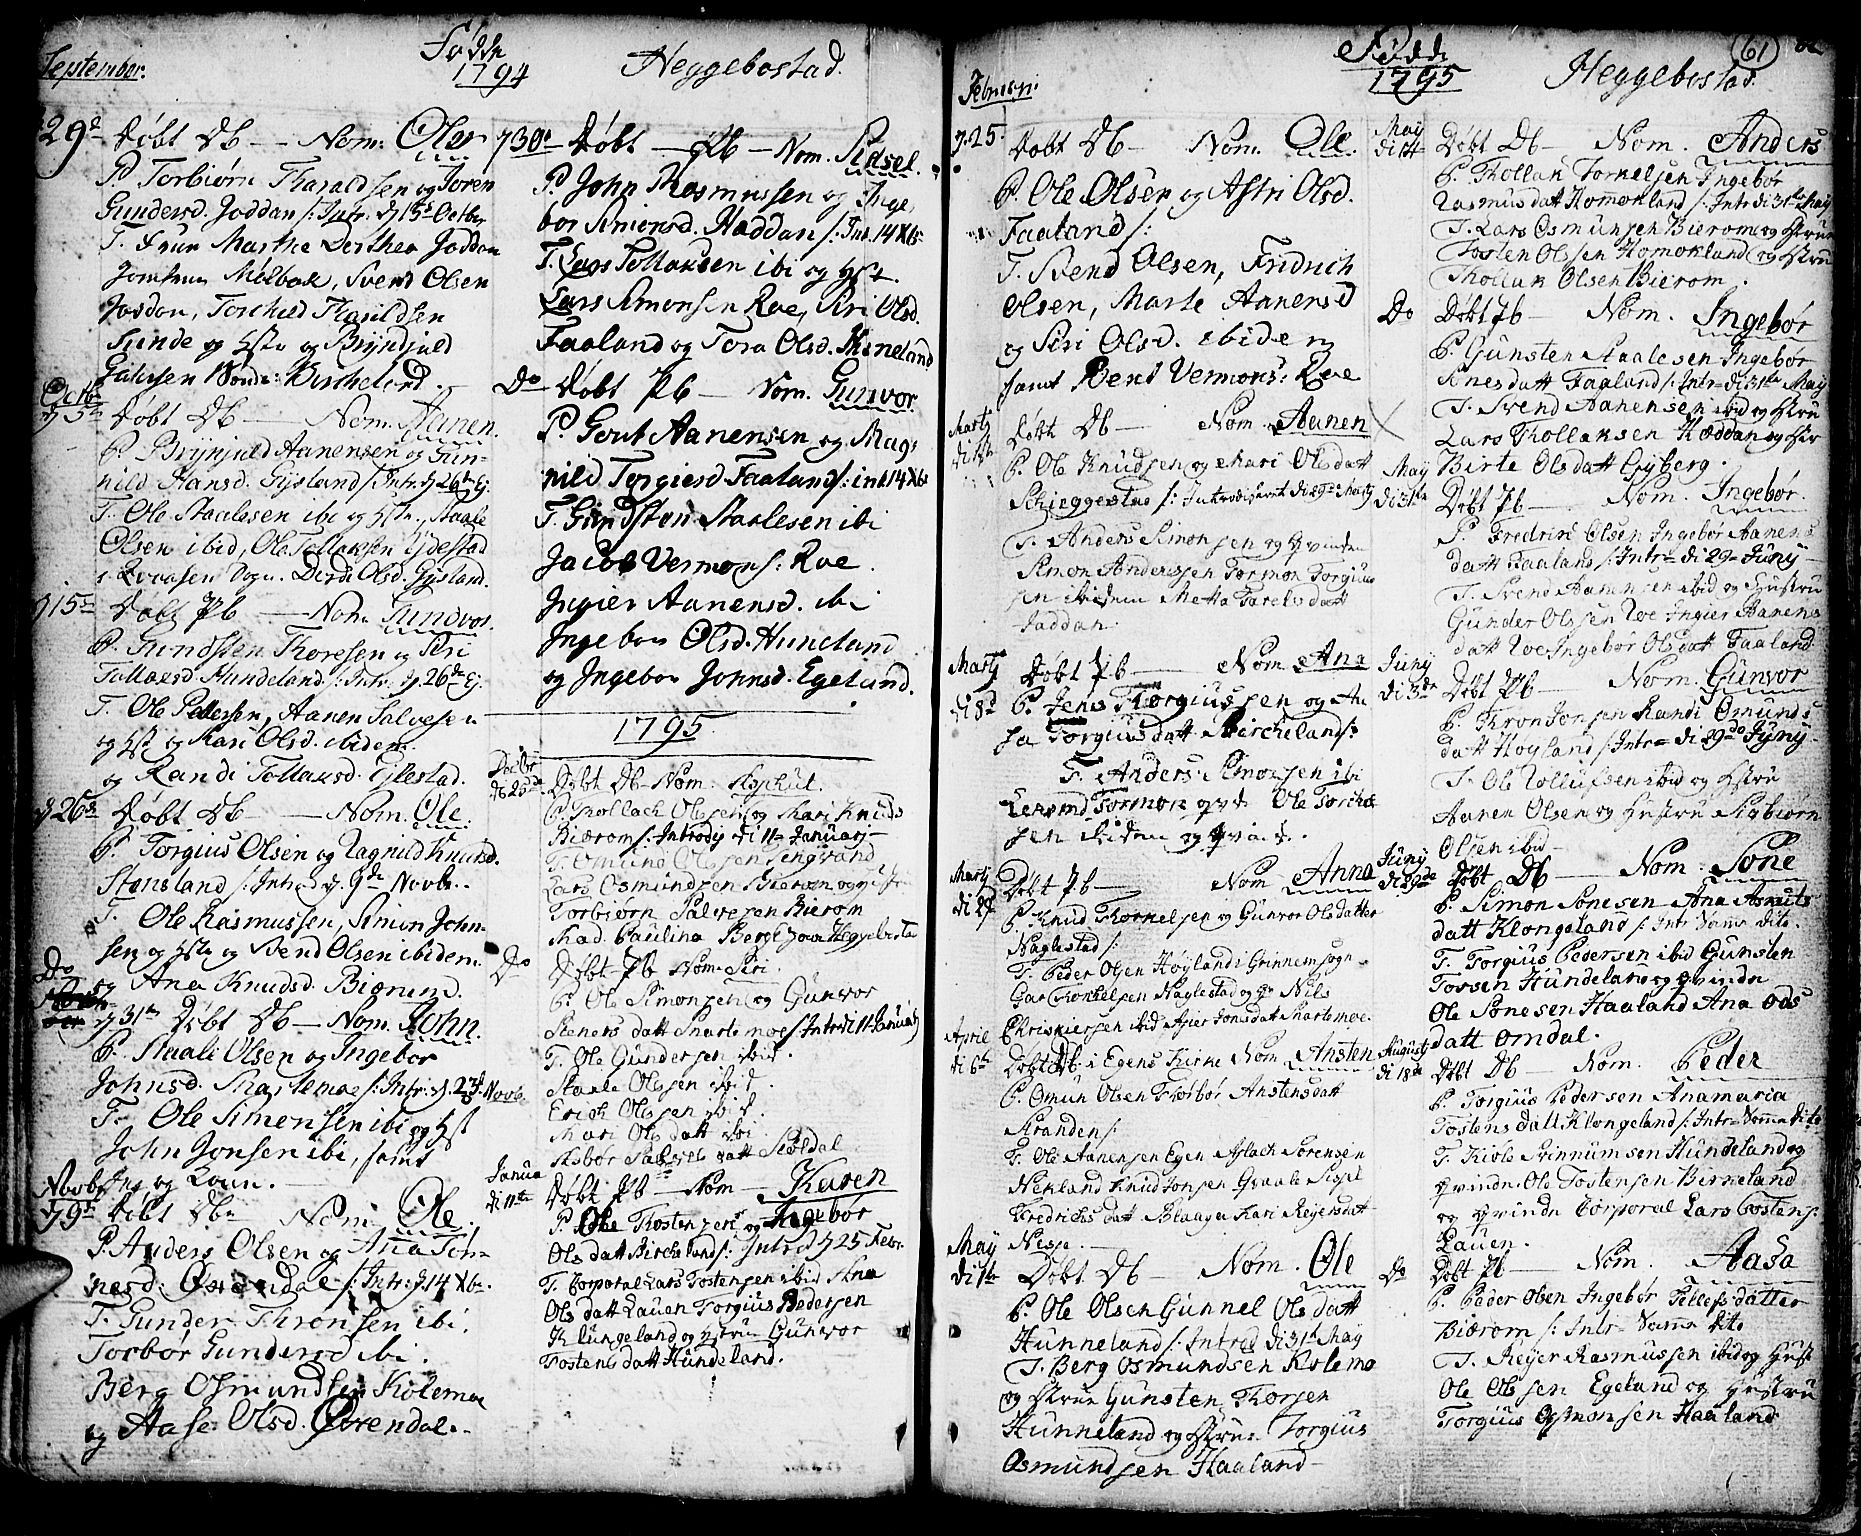 September.
Födde
1794
Heggebostad.
29de Döbt Db — Nom: Oler
P. Torbiørn Tharaldsen og Joren
Gundersd. Joddan /: Intr. d 15de Octbr
T. Frue Marthe Derthea Joddan
Jomfrue Molbak, Svend Olsen
Joddan, Torchild Tharildsen
Sunde og Hstr og Bryndjuld
Birkeland.
Octb
d 5te Döbt Db — Nom. Aanen.
P. Brynjuld Aanensen og Gun-
nild Hansd. Gysland /: Intr. d 26de Ej.
T. Ole Staalesen ibi og Hstr, Staale
Olsen ibid, Ole Tollaksen Eidestad
Sogn. Dorde Olsd. Gysland.
d 15de Döbt Pb — Nom. Gundvor.
P. Gundsten Thoresen og Siri
Tollaksd. Hundeland /: Intr. d 26de Ej.
T. Ole Pedersen, Aanen Salvesen
og Hst og Kari Olsd. ibidem
og Randi Tollaksd. Eglestad.
d 26de Döbt Db — Nom. Ole.
P. Torgius Olsen og Ragnild Knudsd.
Stensland /: Intrd d. 9de Novbr.
T. Ole Rasmussen, Simon John-
sen og Hstr og Svend Olsen ibidem
og Ane Knudsd. Bierum.
Do
d 31te Döbt Db — Nom. John.
P. Staale Olsen og Ingebor
Johnsd. Snartemoe /: Intr: d. 23d Novb.
T. Ole Simensen ibi og Hst
John Jonsen ibi, samt
Ing og Loun.
Novbr
d 9de Döbt Db Nom: Ole.
P. Anders Olsen og Ana Tön-
nesd: Ourendal /: Intr: d 14 Xbr.
T. Gunder Thronsen ibi.
Torbor Gundersd ibi.
Berg Osmundsen Kolemoe
og Aase Olsd. Ourendal.
d 30te Döbt — Pb — Nom. Sidsel.
P. John Rasmussen og Inge,
bor Simonsd. Haddan /: Int. 14 Xbr
T. Lars Tollaksen ibi og Hst
Lars Simonsen Roe, Siri Olsd.
Faaland og Tora Olsd. Huneland
Do Döbt Pb — Nom. Gunvor.
P. Gout Aanensen og Mag:
nild Torgiesd Faaland /: int 14 Xbr
T. Gundsten Staalesen ibi
Jacob Vermons: Roe.
Ingier Aanensd. ibi
Ingebor Olsd. Huneland
og Ingebor Johnsd. Egeland.
1795
Decbr
di 26de Döbt Db Nom. Asphul.
P. Thollach Olssen og Mari Knuds
Bierom /: Introdiy di 11te January
T. Omund Olssen Lengvand
Lars Osmundsen Bierom og Hstr
Torbiørn Salvesen Bierom
Mad. Paulina Berge Heggebosta
Do Döbt Pb Nom. Siri.
P. Ole Simonsen og Gunvor
Steners datt Snartemoe /: Intr di 11te January
T. Ole Gundersen ibid.
Staale Olssen ibid.
Erich Olssen ibid.
Mari Ols datt ibi.
Asbor Salves datt Skoldal
Janua
di 11te Döbt Pb — Nom — Karen
P. Ole Tostensen og Ingebor
Ols datt Birkeland /: Introd d 25 Febr.
T. Corporal Lars Tostensen ibid Ana
Ols datt Lauen Torgius Pedersen
Klungeland og Hstru Gunvor
Tostens datt Hundeland.
Födde
1795
Heggebostad.
61
February.
d. 25. Döbt Db — Nom. Ole.
P. Ole Olsen og Astri Olsd.
Faaland /:
T. Svend Olsen, Fridrich
Olsen, Marte Aanensd
og Siri Olsd. ibidem
samt Bent Vermons: Roe
Marty
Döbt Db — Nom. Aanen
P. Ole Knudsen og Mari Olsdatt
Schieggestad /: Introdiseret di 29de Marty
T. Anders Simonsen og qvinden
Simon Anderssen Tormon Torgius
sen ibidem Metta Tarelsdatt
Faddan
Marty
di 8d Döbt Pb — Nom. Ana
P. Jens Thorgiussen og An
Torgiusdatt Birckeland /:
T. Anders Simonsen ibi
Tormon qvd Ole Torchel
sen ibidem og qvinde.
Marty
di 29 Döbt Pb — Nom. Anna
P. Knud Thorkelsen og Gunvor Olsdatter
Naglestad /:
T. Peder Olsen Høyland i Grinnem sogn
Gar Thorkelsen Naglestad og qv Nils
Chriskiersen ibid Asier Jonsdatt Snartemoe.
Aprie
di 6te Döbt Db. i Egens Kirke Nom. Ansten
P. Omun Olsen Thorbör Anstensdatt
Stranden /:
T. Ole Aanensen Egen Aslack Sorensen
Nekland Knid Jonsen Qvaale Sissel
Fredrichs datt Blaage Kari Reyersdatt
Nesse.
May
di 1te Döbt Db — Nom. Ole
P. Ole Olsen Gunnel Olsdatt
Hunneland /: Introd di 31te May
T. Berg Osmundsen Kolemo
og Hstrue Gunsten Thorsen
Hunneland og Hstru: Torgius
Osmundsen Haaland
May
di 14 Döbt Db — Nom. Anders
P. Thollak Torkelsen Ingebör
Rasmusdatt Homokland /: Intr di 31te May
T. Lars Osmunsen Bierom og Hstrue
Tosten Olssen Homokland og Hstru
Thollak Olsen Bierom.
Do Döbt Pb — Nom. Ingebör
P. Gunsten Staalesen Ingebor
Sonesdatt Faaland /: Intr di 31te May
T. Svend Aanensen ibid og Hstru
Lars Thollaksen Hoddan og Hstr
Birte Olsdatt Gyberg.
May
di 31te Döbt Pb — Nom. Ingebör.
P. Fredric Olsen Ingebør Aanens
datt Faaland /: Intr di 29 Juny
T. Svend Aanensen ibid og Hustru
Gunder Olssen Roe Ingier Aanens
datt Roe Ingebör Olsdatt Faaland
Juny
di 3de Döbt Pb — Nom. Gunvor
P. Thron Jonsen Randi Omunds
datt Høyland /: Intr di 29de Juny
T. Ole Rollufsen ibid og Hstru
Aanen Olsen og Hustru Sigbiørn
Olsen ibid
Juny
di 29de Döbt Db — Nom: Sone
P. Simon Sonesen Ana Asmuts
datt Klongeland /: Intr Samme dito.
T. Torgius Pedersen ibid Gunsten
Torsen Hundeland og qvinde
Ole Sonesen Haaland Ana Ods
datt Omdal.
Augusty
di 18de Döbt Db — Nom. Peder
P. Torgius Pedersen Anamaria
Tostens datt Klongeland /: Intr Samme dito
T. Kiöle Svinnumsen Hundeland og
qvinde Ole Tostensen Birkeland
og qvinde Corporal Lars Tostens:
Lauen.
Do Döbt Pb — Nom. Aasa
P. Peder Olsen Ingebör Tellefsdatter
Bierom /: Intr Samme dito
T. Reyer Rasmussen ibid og Hust
Ole Olssen Egeland og Hustru
Torgius Osmonsen Haaland